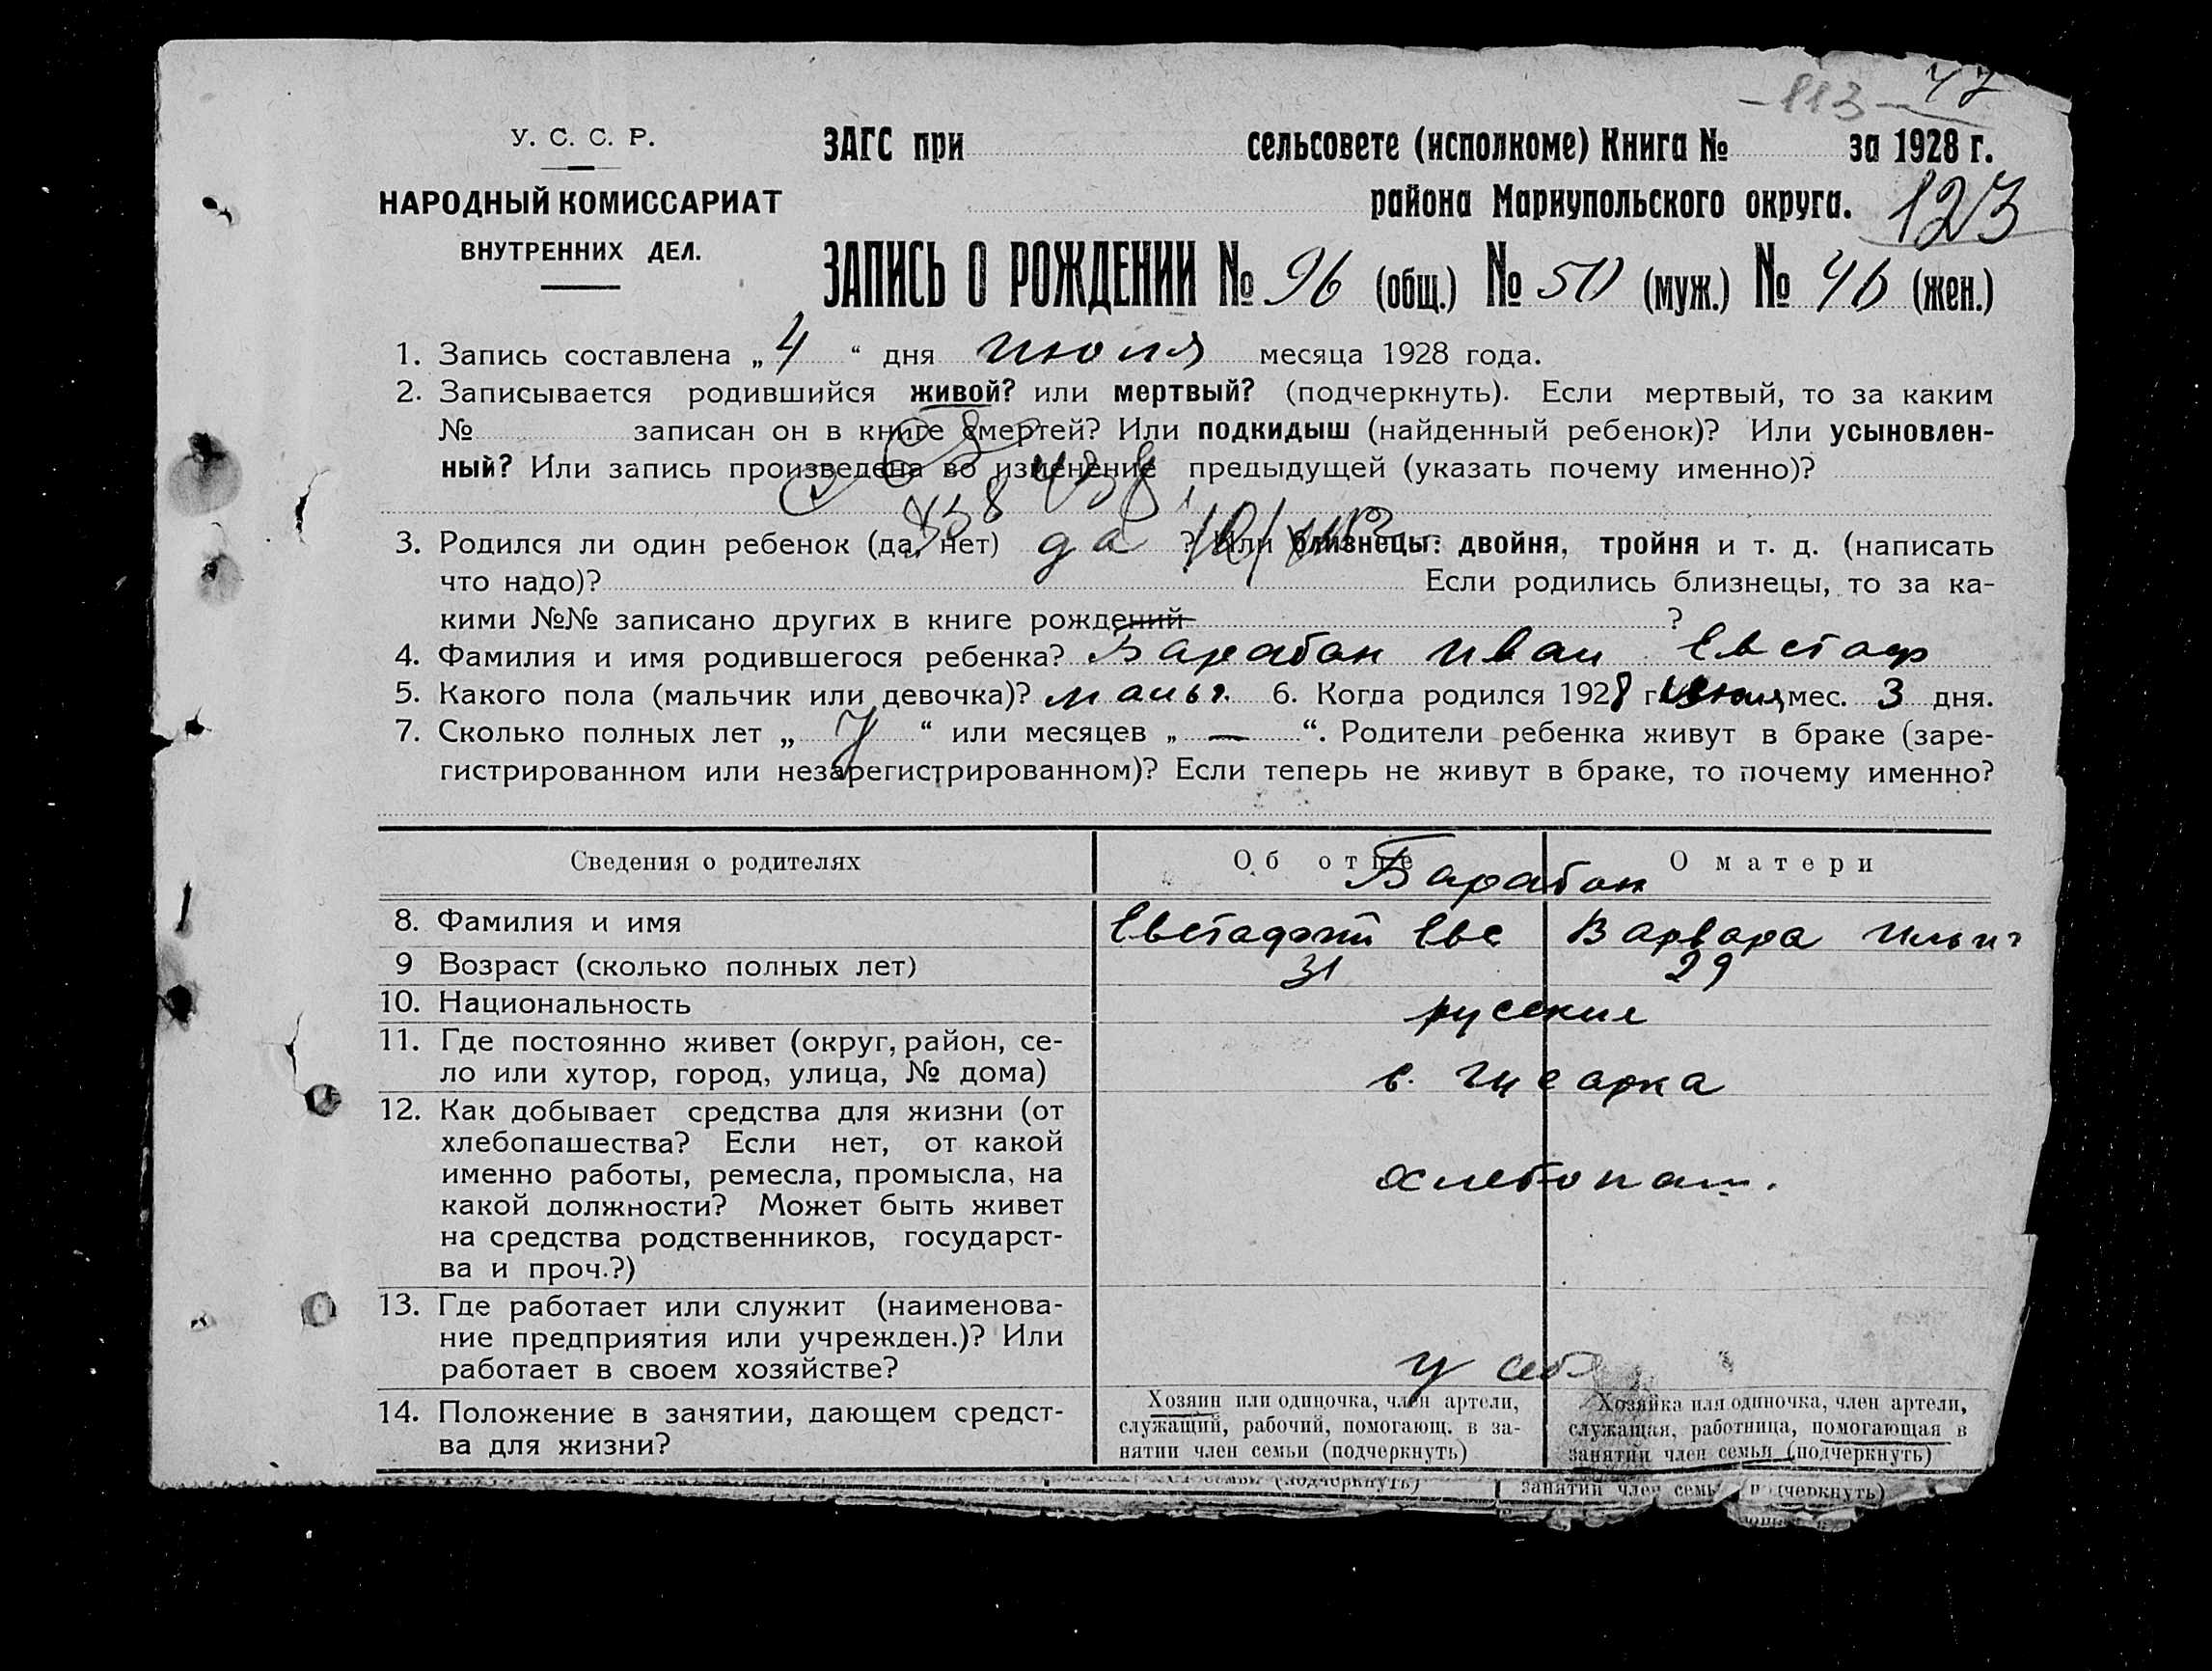 -113- 47
У. С. С. Р.
НАРОДНЫЙ КОМИССАРИАТ
ВНУТРЕННИХ ДЕЛ.
ЗАГС при сельсовете (исполкоме) Книга № за 1928 г.
района Мариупольского округа. 123
ЗАПИСЬ О РОЖДЕНИИ № 96 (общ.) № 50 (муж.) № 46 (жен.)
1. Запись составлена „ 4 “ дня июля месяца 1928 года.
2. Записывается родившийся живой? или мертвый? (подчеркнуть). Если мертвый, то за каким
№ записан он в книге смертей? Или подкидыш (найденный ребенок)? Или усыновлен-
ный? Или запись произведена во изменение предыдущей (указать почему именно)?
3. Родился ли один ребенок (да, нет) да ? Или близнецы: двойня, тройня и т. д. (написать
что надо)? Если родились близнецы, то за ка-
кими №№ записано других в книге рождений ?
4. Фамилия и имя родившегося ребенка? Барабан Иван Евстаф
5. Какого пола (мальчик или девочка)? мальч. 6. Когда родился 1928 г. июля мес. 3 дня.
7. Сколько полных лет „ 7 “ или месяцев „ — “. Родители ребенка живут в браке (заре-
гистрированном или незарегистрированном)? Если теперь не живут в браке, то почему именно?
Сведения о родителях Об отце О матери
Барабан
8. Фамилия и имя Евстафий Евс Варвара Ильич
9 Возраст (сколько полных лет) 31 29
10. Национальность русские
11. Где постоянно живет (округ, район, се-
ло или хутор, город, улица, № дома)
12. Как добывает средства для жизни (от
хлебопашества? Если нет, от какой
именно работы, ремесла, промысла, на хлебопаш.
какой должности? Может быть живет
на средства родственников, государст-
ва и проч.?)
13. Где работает или служит (наименова-
ние предприятия или учрежден.)? Или
работает в своем хозяйстве? у себя
14. Положение в занятии, дающем средст-
ва для жизни?
Хозяин или одиночка, член артели,
служащий, рабочий, помогающ. в за-
нятии член семьи (подчеркнуть)
Хозяйка или одиночка, член артели,
служащая, работница, помогающая в
занятии член семьи (подчеркнуть)
семьи (подчеркнуть) занятии член семьи (подчеркнуть)